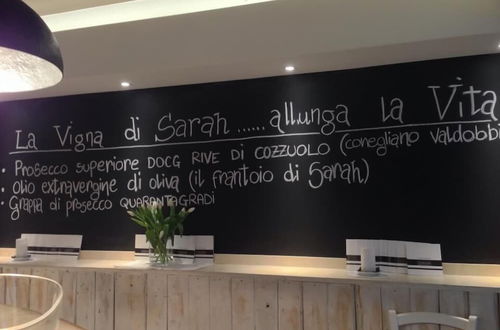 La Vigna di Sarah ...... allunga la Vita
• Prosecco superiore DOCG RIVE DI COZZUOLO (conegliano valdobbi
• olio extravergine di oliva (il frantoio di Sarah)
• Grappa di prosecco QUARANTAGRADI